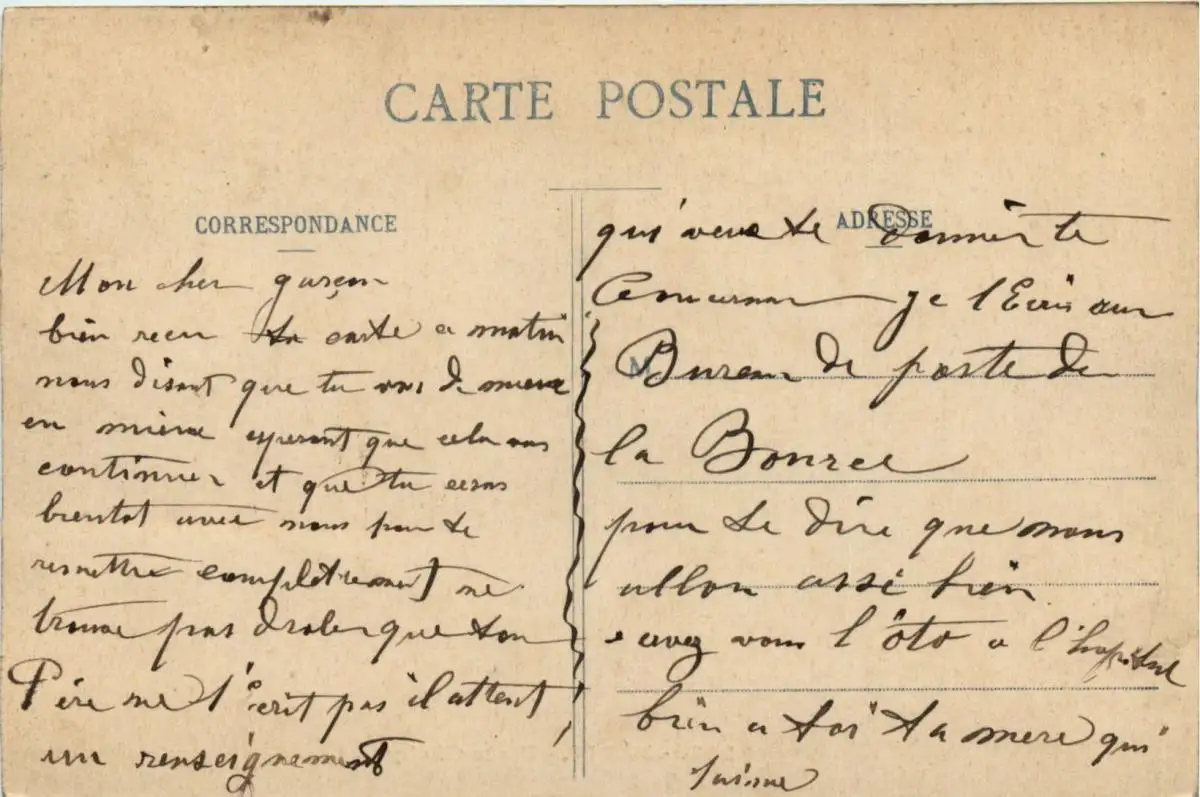 CARTE POSTALE
CORRESPONDANCE
Mon cher garçon
bien recu ta carte ce matin
nous disant que tu vas de mieux
en mieux esperant que cela vas
continuer et que tu seras
bientot avec nous pour te
remettre completement ne
trouve pas drole que ton
Père ne t'ecrit pas il attent
un renseignement
ADRESSE
qui veux te donner te
je t'Ecris au
Bureau de poste de
la
pour te dire que nous
allon assé bien
avez vous l'oto a l'hopital
bien a toi ta mere qui
t'aime